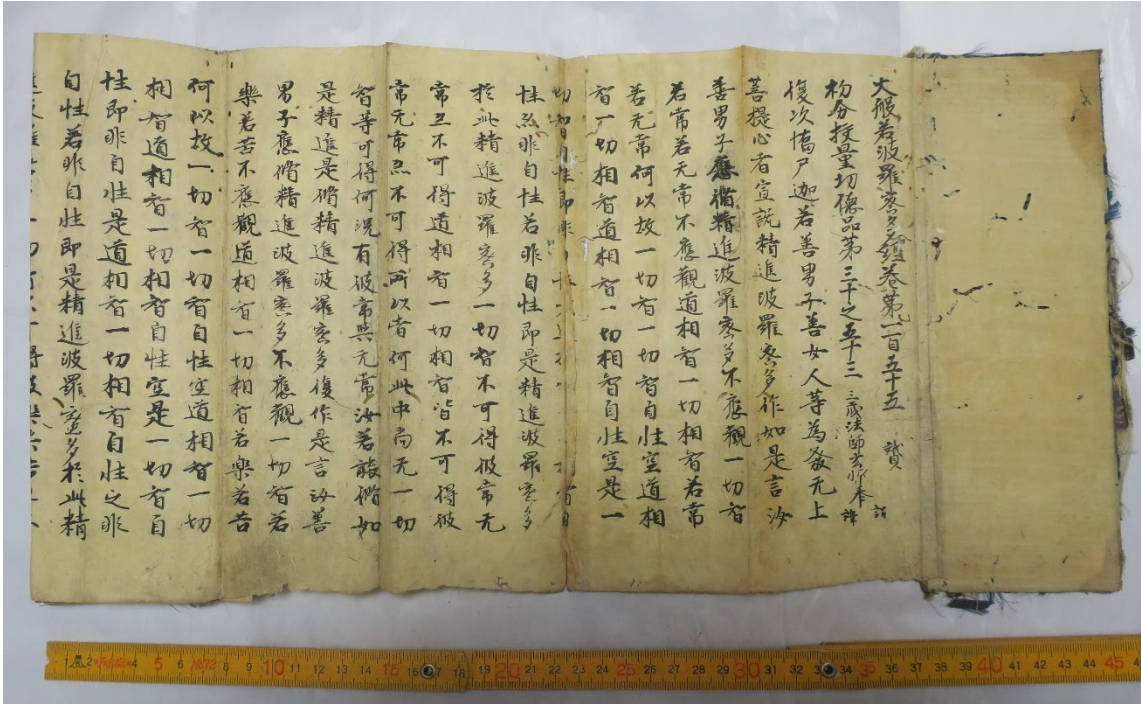 大般若波羅蜜多經卷第一百五十五 贊
初分挍量功德品第三十之五十三 三藏法師玄奘奉 詔譯
復次憍尸迦若善男子善女人等為發无上
菩提心者宣說精進波羅蜜多作如是言汝
善男子應脩精進波羅蜜多不應觀一切智
若常若无常不應觀道相智一切相智若常
若无常何以故一切智一切智自性空道相
智一切相智道相智一切相智自性空是一
切智自性即非
性亦非自性若非自性即是精進波羅蜜多
於此精進波羅蜜多一切智不可得彼常无
常亦不可得道相智一切相智皆不可得彼
常无常亦不可得所以者何此中尚无一切
智等可得何況有彼常與无常汝若能脩如
是精進是脩精進波羅蜜多復作是言汝善
男子應脩精進波羅蜜多不應觀一切智若
樂若苦不應觀道相智一切相智若樂若苦
何以故一切智一切智自性空道相智一切
相智道相智一切相智自性空是一切智自
性即非自性是道相智一切相智自性亦非
自性若非自性即是精進波羅蜜多於此精
1 2 4 5 6 8 9 10 11 12 13 14 15 16 17 18 19 20 21 22 23 24 25 26 27 28 29 30 31 32 33 34 35 36 37 38 39 40 41 42 43 44 45